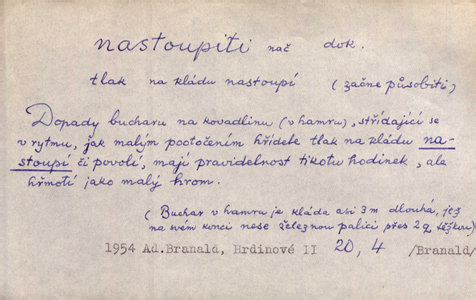 nastoupiti nač dok.
tlak na kládu nastoupí (začne působiti)
Dopady bucharu na kovadlinu (v hamru), střídající se
v rytmu, jak malým pootočením hřídele tlak na kládu na-
stoupí či povolí, mají pravidelnost tikotu hodinek, ale
hřmotí jako malý hrom.
(Buchar v hamru je kláda asi 3 m dlouhá, jež
na svém konci nese železnou palici přes 2 q těžkou)
1954 Ad.Branald, Hrdinové II 20,4 /Branald/